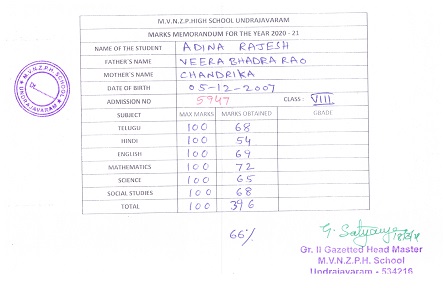 M.V.N.Z.P.HIGH SCHOOL UNDRAJAVARAM
MARKS MEMORANDUM FOR THE YEAR 2020 - 21
NAME OF THE STUDENT ADINA RAJESH
FATHER'S NAME VEERA BHADRA RAO
MOTHER'S NAME CHANDRIKA
DATE OF BIRTH 05-12-2007
ADMISSION NO 5947 CLASS : VIII
SUBJECT MAX MARKS MARKS OBTAINED GRADE
TELUGU 100 68
HINDI 100 54
ENGLISH 100 69
MATHEMATICS 100 72
SCIENCE 100 65
SOCIAL STUDIES 100 68
TOTAL 100 396
M.V.N.Z.P.H SCHOOL
UNDRAJAVARAM
66%
Gr. II Gazetted Head Master
M.V.N.Z.P.H. School
Undrajavaram - 534216